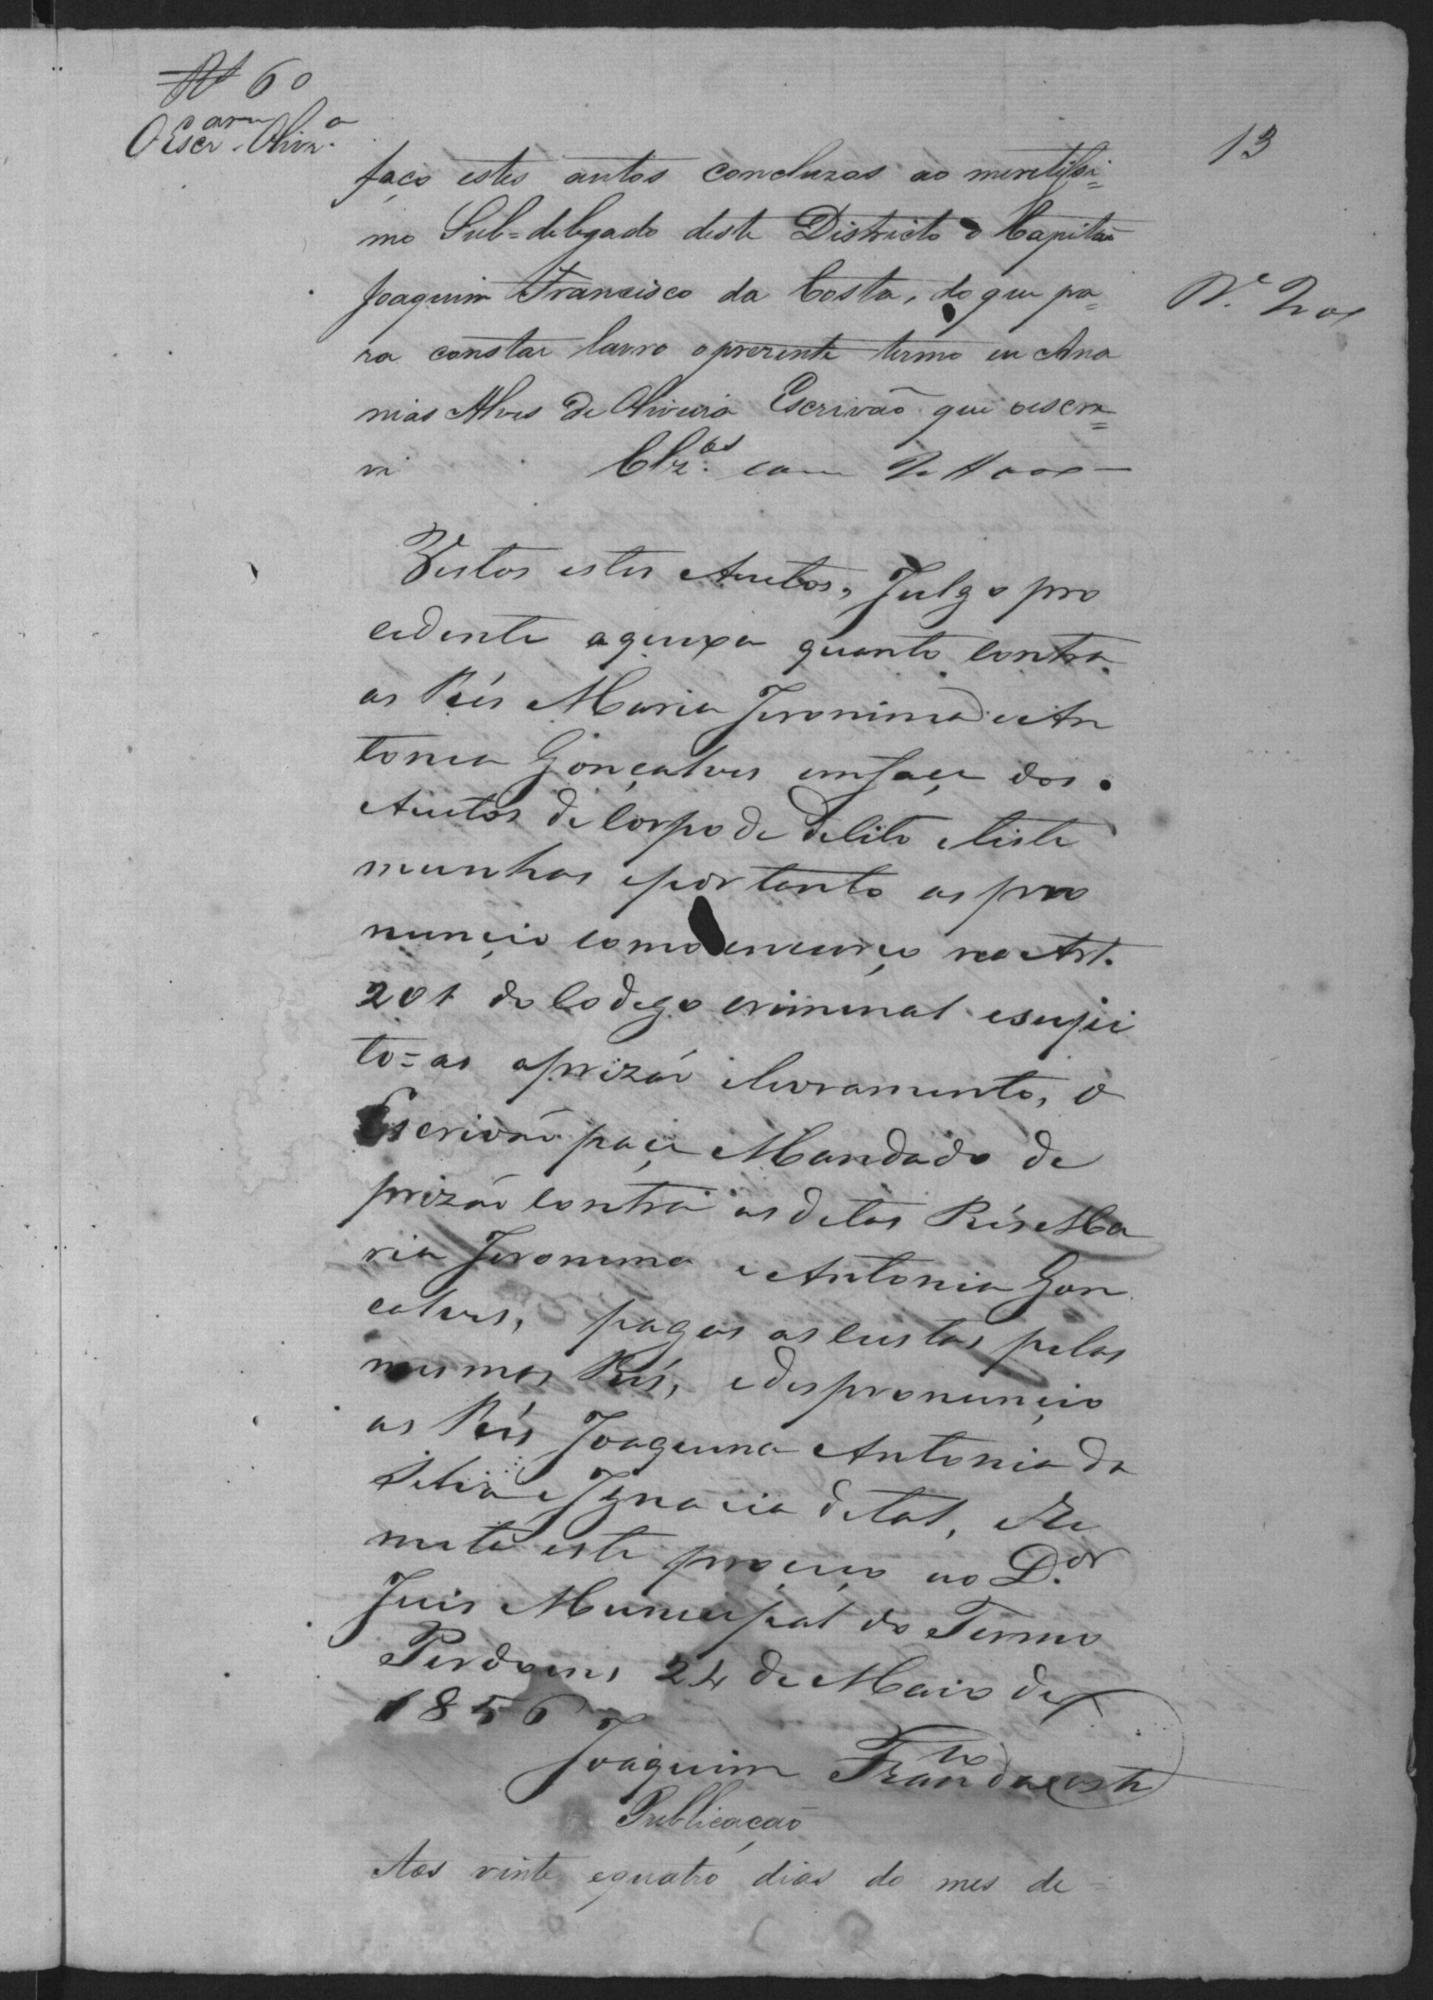 N 60
O Escr.am Olivr.a
13
faço estes autos concluzos ao meretissi=
mo Sub=delegado deste Districto o Capitaõ
Joaquim Francisco da Costa, do que pa=
ra constar lavro o prezente termo eu Ana
nias Alves de Oliveira Escrivaõ que o escre=
vi Clz.os com
Vistos estes Autos, Julgo pro
cedente a queixa quanto contra
as Réis Maria Jeronima e An
tonia Gonçalves em façe dos
Autos de Corpo de Delito e teste
munhas e por tanto as pro
nunçio como encurço no Art.
201 do Codego criminal e sugei
to=as a prizáo e livramento, o
Escriváo paçe Mandado de
prizáo contra as ditas Réis Ma
ria Jeronima e Antonia Gon
calves, pagas as custas pelas
mesmas Réis, e despronunçio
as Réis Joaquina Antonia da
Silva e Ignacia de tal, e Re
meta este proçeço ao D.or
Juis Municipal do Termo
Perdoens 24 de Maio de
1856
Joaquim Fran.co da Costa
Publicaçaõ
Aos vinte e quatro dias do mes de =